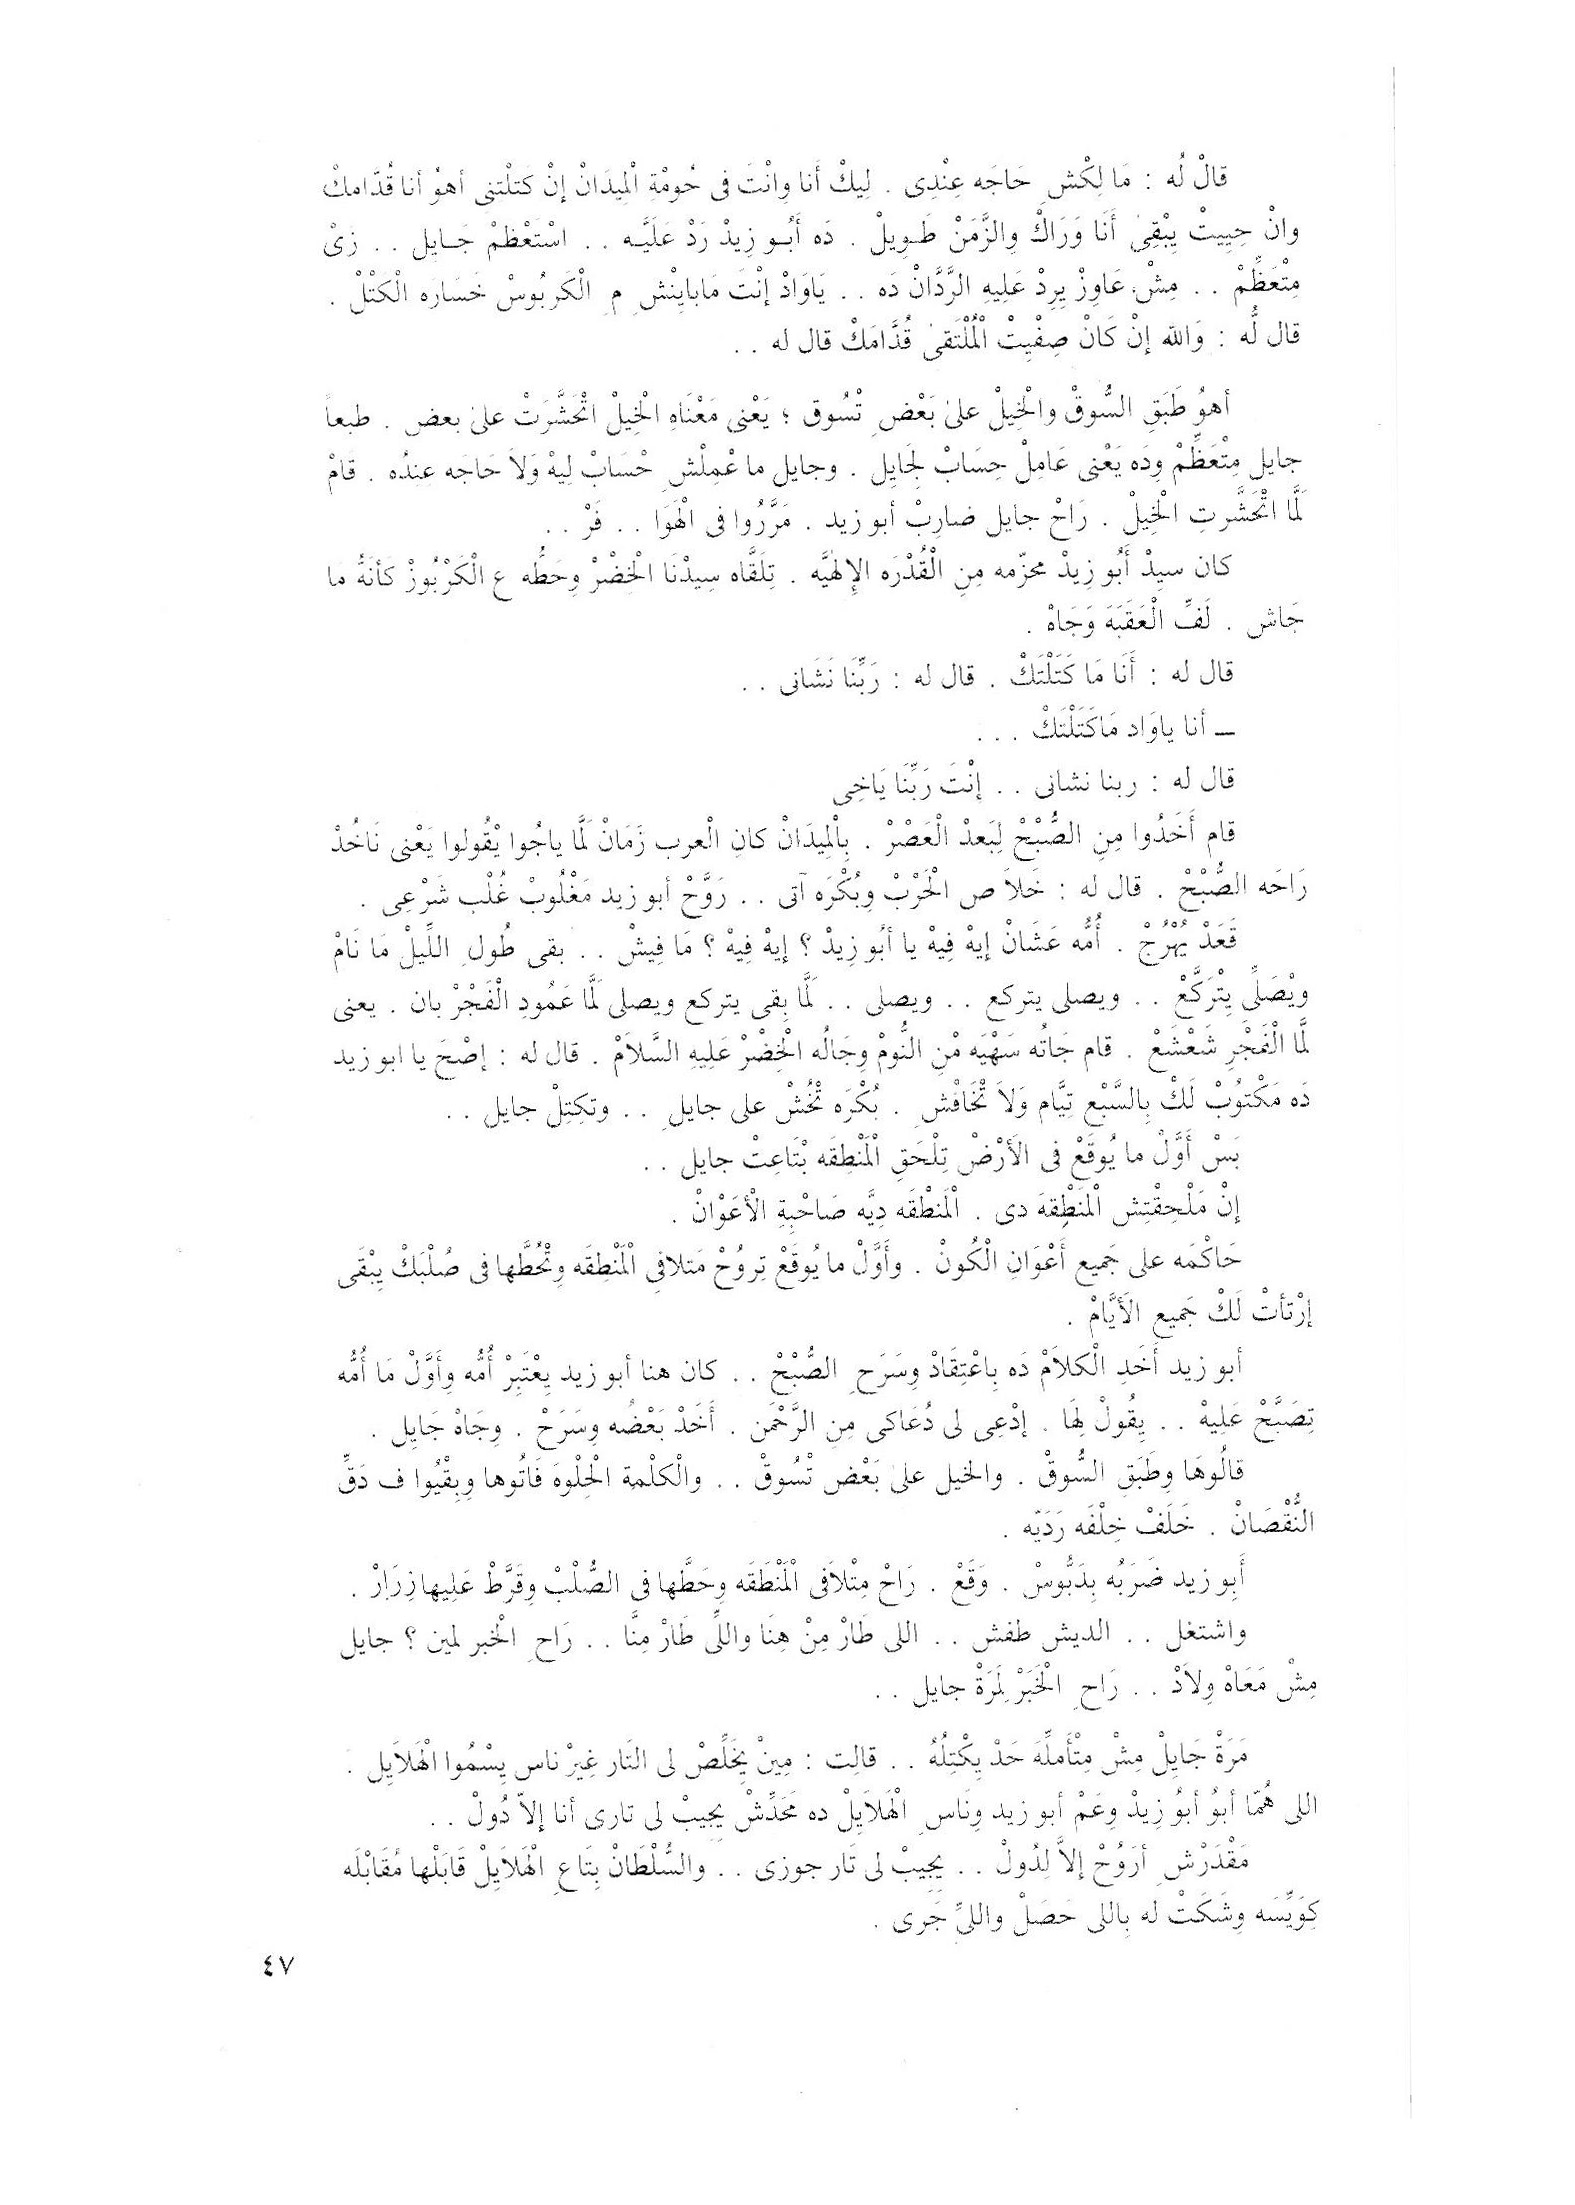 قالْ لُه : مَا لِكْشِ حَاجَه عِنْدِى . لِيكْ أَنا وِانْتَ فى حُومْةِ الْمِيدَانْ إنْ كَتلْتنِى أهوُ أنا قُدّامكْ
وانْ حِييتْ يِبْقِىٰ أَنَا وَرَاكْ والزَّمَنْ طَـوِيلْ . دَه أَبُـو زِيدْ رَدْ عَلَيَّـه . . اسْتَعْظمْ جَـايل . . زىْ
مِتْعَظِّمْ . . مِشْ عَاوِزْ يِرِدْ عَلِيهِ الرَّدَّانْ دَه . . يَاوَادْ إنْتَ مَاباينْشِ مِ الْكَربُوسْ خَسَاره الْكَتْلْ .
قال لُه : وَالله إنْ كَانْ صِفْيِتْ الْمُلْتَقىٰ قُدَّامَكْ قال له . .
أهوُ طَبَقِ السُّوقْ والْخِيلْ علىٰ بَعْضِ تْسُوق ؛ يَعْنى مَعْنَاهِ الْخِيلْ اتْحَشَّرَتْ علىٰ بعض . طبعاً
جايل مِتْعَظِّمْ وِدَه يَعْنى عَامِلْ حِسَابْ لِجَايِل . وجايل ما عْمِلْشِ حْسَابْ لِيهْ وَلاَ حَاجَه عندُه . قامْ
لَمَّا اتْحَشَّرتِ الْخِيلْ . رَاحْ جايل ضاربْ أبو زيد . مَرَّرُوا فى الْهَوَا . . فَرْ . .
كان سيِدْ أَبُو زِيدْ محزّمه مِنِ الْقُدْرَه الإِلهٰيَّه . تِلَقَّاه سِيدْنَا الْخِضْرْ وِحَطُّه ع الْكَرْبُوزْ كَأنَهُ مَا
جَاش . لَفِّ الْعَقَبَهَ وَجَاهْ .
قال له : أَنَا مَا كَتَلْتَكْ . قال له : رَبِّنَا نَشَانى . .
ــ أنا ياوَاد مَاكَتَلْتَكْ . . .
قال له : ربنا نشانى . . إنْتَ رَبِّنَا يَاخِى
قام أَخَدُوا مِنِ الصُّبْحْ لِبَعدْ الْعَصْرْ . بِالْمِيدَانْ كانِ الْعرب زَمَانْ لَمَّا ياجُوا يْقُولوا يَعْنى نَاخُدْ
رَاحَه الصُّبْحْ . قال له : خَلاَص الْحَرْبْ وِبُكْرَه آتى . . رَوَّحْ أبو زيد مَغْلُوبْ غُلْب شَرْعِى .
قَعَدْ يُهْرُجْ . أُمُّه عَشَانْ إيهْ فِيهْ يا أبُو زِيدْ ؟ إيهْ فِيهْ ؟ مَا فِيشْ . . بقى طُولِ اللِّيلْ مَا نَامْ
ويْصَلِّى يِتْرَكَّعْ . . ويصلى يتركع . . ويصلى . . لَمَّا بِقى يتركع ويصلى لَمَّا عَمُودِ الْفَجْرْ بان . يعنى
لَمَّا الْفَجْرِ شَعْشَعْ . قام جَاتُه سَهْيَه مْنِ النُّومْ وِجَالُه الْخِضْرْ عَلِيهِ السَّلاَمْ . قال له : إصْحَ يا ابو زيد
دَه مَكْتوُبْ لَكْ بِالسَّبْع تِيَّام وَلاَ تْخَافْشِ . بُكْرَه تْخُشْ على جايلِ . . وتكِتِلْ جايل . .
بَسْ أَوَّلْ ما يُوقَعْ فى الأَرْضْ تِلْحَقِ الْمَنْطِقَه بْتَاعِتْ جايل . .
إنْ مَلْحِقْتِش الْمَنْطِقهَ دى . الْمَنطْقَه دِيَّه صَاحْبِةِ الْأعَوْانْ .
حَاكْمَه على جَميع أَعْوَانِ الْكُونْ . وأَوَّلْ ما يُوقَعْ تِروُحْ مَتلافِى الْمَنْطِقَه وِتْحُطَّها فى صُلْبَكْ يِبْقَى
إرْتأتْ لَكْ جَميعِ الأَيَّامْ .
أبو زيد أَخَدِ الْكلاَمْ دَه بِاعْتِقَادْ وِسَرَحِ الصُّبْحْ . . كان هنا أبو زيد يِعْتَبِرْ أُمُّه وِأَوَّلْ مَا أُمُّه
تِصَبَّحْ عَلِيهْ . . يِقُولْ لِهَا . إدْعِى لى دُعَاكى مِن الرَّحْمَن . أَخَدْ بَعْضُه وِسَرَحْ . وِجَاهْ جَايِل .
قالُوهَا وِطَبَقِ السُّوقْ . والخيل علىٰ بَعْض تْسُوقْ . . والْكلْمة الْحِلْوهَ فَاتُوها وِبِقْيُوا ف دَقِّ
النُّقْصَانْ . خَلَفْ خِلْفَه رَدَيّه .
أَبو زيد ضَرَبُه بِدَبُّوسْ . وَقَعْ . رَاحْ مِتْلاَفى الْمَنْطَقَه وِحَطَّها فى الصُّلْبْ وِقَرَّطْ عَلِيها زِرَارْ .
واشتغل . . الديش طفش . . اللى طَارْ مِنْ هِنَا واللّى طَارْ مِنَّا . . رَاحِ الْخبر لمين ؟ جايل
مِشْ مَعَاهْ وِلاَدْ . . رَاحِ الْخَبَرْ لِمَرَةْ جايل . .
مَرَةْ جَايِلْ مِشْ مِتْأَملَّهَ حَدْ يِكْتِلُهُ . . قالِت : مِينْ يِخَلِّصْ لى التَار غِيرْ ناس يِسْمُوا الْهَلاَيِل .
اللى هُمّا أبوُ أبوُ زِيدْ وِعَمْ أبو زيد وِنَاسِ الْهَلاَيِلْ ده مَحَدِّشْ يِجيبْ لى تارى أنا إلاّ دُولْ . .
مَقْدَرْشِ أرَوُحْ إلاَّ لِدُولْ . . يِجيبْ لى تَار جوزى . . والسُّلْطَانْ بِتَاعِ الْهَلاَيِلْ قَابَلْها مُقَابْلَه
كِوَيِّسَه وِشَكَتْ له بِاللى حَصَلْ واللىِّ جَرى .
٤٧